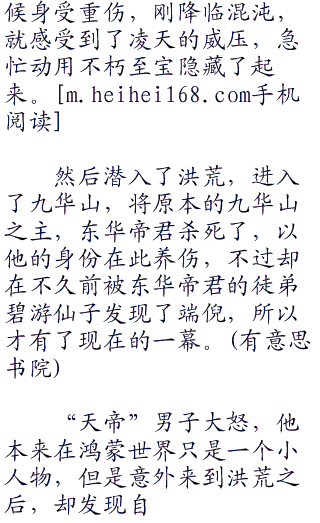 候身受重伤，刚降临混沌，
就感受到了凌天的威压，急
忙动用不朽至宝隐藏了起
来。[m.heihei168.com手机
阅读]
然后潜入了洪荒，进入
了九华山，将原本的九华山
之主，东华帝君杀死了，以
他的身份在此养伤，不过却
在不久前被东华帝君的徒弟
碧游仙子发现了端倪，所以
才有了现在的一幕。(有意思
书院)
“天帝”男子大怒，他
本来在鸿蒙世界只是一个小
人物，但是意外来到洪荒之
后，却发现自